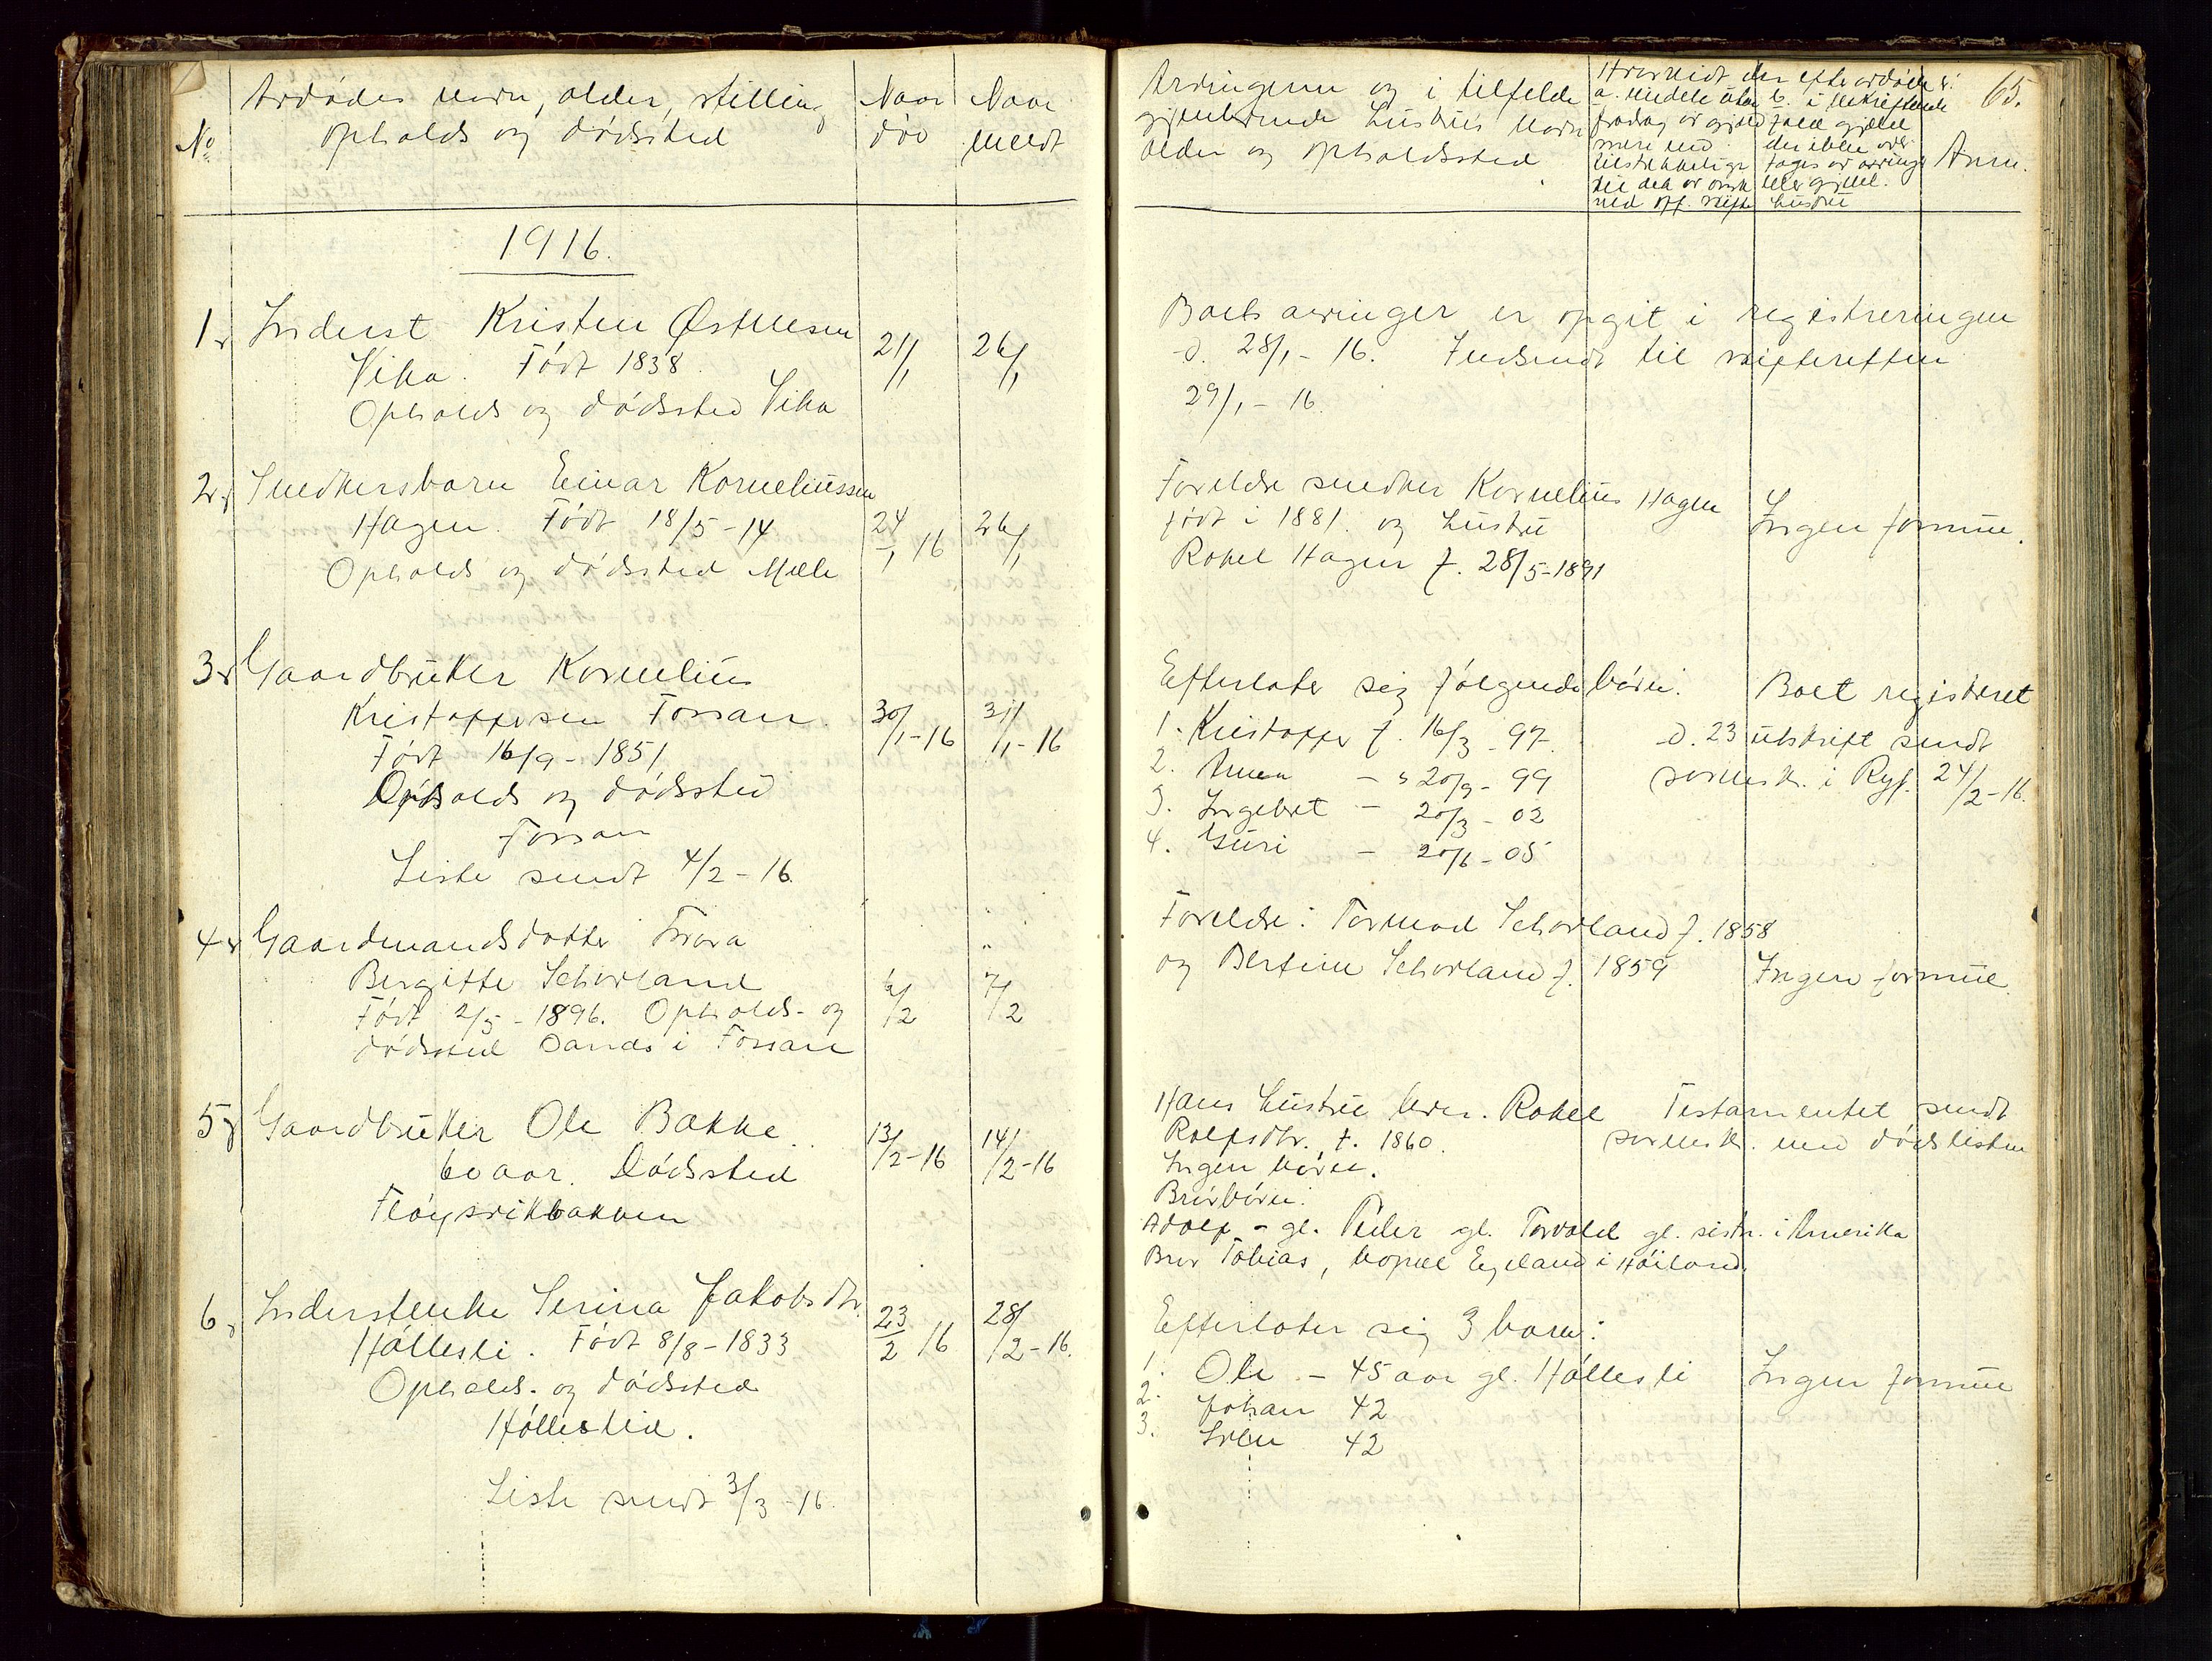 No
Avdødes navn, alder, stilling
opholds og dødssted
Naar
død
Naar
meldt
1916.
1. Inderst Kristen Østensen
Vika. Født 1838.
Opholds og dødssted Vika
21/1
26/1
2. Snedkersbarn Einar Korneliussen
Hagen. Født 18/5-14
Opholds og dødssted Melle
24/1 16
26/1
3. Gaardbruker Kornelius
Kristoffersen Fossan.
Født 16/9-1851
Opholds og dødssted
Fossan
Liste sendt 4/2-16.
30/1-16
31/1-16
4. Gaardmandsdatter Tora
Bergitte Selvorland
Født 2/5-1896. Opholds- og
dødssted Sandsi Fossan
6/2
7/2
5. Gaardbruker Ole Bakke.
60 aar. Dødssted
Fløysvikbakken
13/2-16
14/2-16
6. Inderstenke Serina Jakobsdtr.
Høllesli. Født 8/8-1833
Opholds- og dødssted
Høllesli.
23/2 16
28/2-16.
Liste sendt 3/3-16.
65.
Arvingern og i tilfelde
gjenlevende hustrus navn
alder og opholdssted
Hvorvidt den efter avdøde
a. midele uten
fradrag av gjæld
mere end
tilstrekkelige
til dek av omk
ved off. skifte
b. i bekreftende
fald gjæld
der ikke over
tages av arvinge
eller gjenl.
hustru
Anm.
Boets arvinger er opgit i registreringen
d. 28/1-16. Indsendt til skifteretten
29/1-16.
Foreldre snedker Kornelius Hagen
født i 1881. og hustru
Rakel Hagen f. 28/5-1891
Ingen formue.
Efterlater sig følgende børn:
1. Kristoffer f. 16/3-97.
2. Anna - " 20/9-99
3. Ingebret - 20/3-02
4. Guri - 20/6-05
Boet registreret
d. 23 utskrift sendt
sorensk. i Ryf. 24/2-16.
Foreldre: Tormod Selvorland f. 1858
og Bertine Selvorland f. 1859
Ingen formue.
Hans hustru lever. Rakel
Rolfsdtr. f. 1860.
Ingen børn.
Brorbørn:
Adolf - gl. Peder gl. Torvald gl. sistn. i Amerika
Bror Tobias, bopæl Egeland i Høiland.
Testamentet sendt
sorensk. med dødslisten
Efterlater sig 3 barn:
1. Ole - 45 aar gl. Høllesli
2. Johan 42
3. Sven 42
Ingen formue